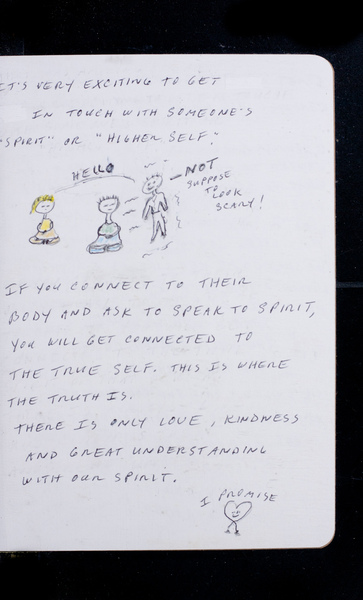 IT'S VERY EXCITING TO GET
IN TOUCH WITH SOMEONE'S
"SPIRIT" OR "HIGHER SELF."
HELLO
NOT
SUPPOSE
TO
LOOK
SCARY!
IF YOU CONNECT TO THEIR
BODY AND ASK TO SPEAK TO SPIRIT,
YOU WILL GET CONNECTED TO
THE TRUE SELF. THIS IS WHERE
THE TRUTH IS.
THERE IS ONLY LOVE, KINDNESS
AND GREAT UNDERSTANDING
WITH OUR SPIRIT.
I PROMISE